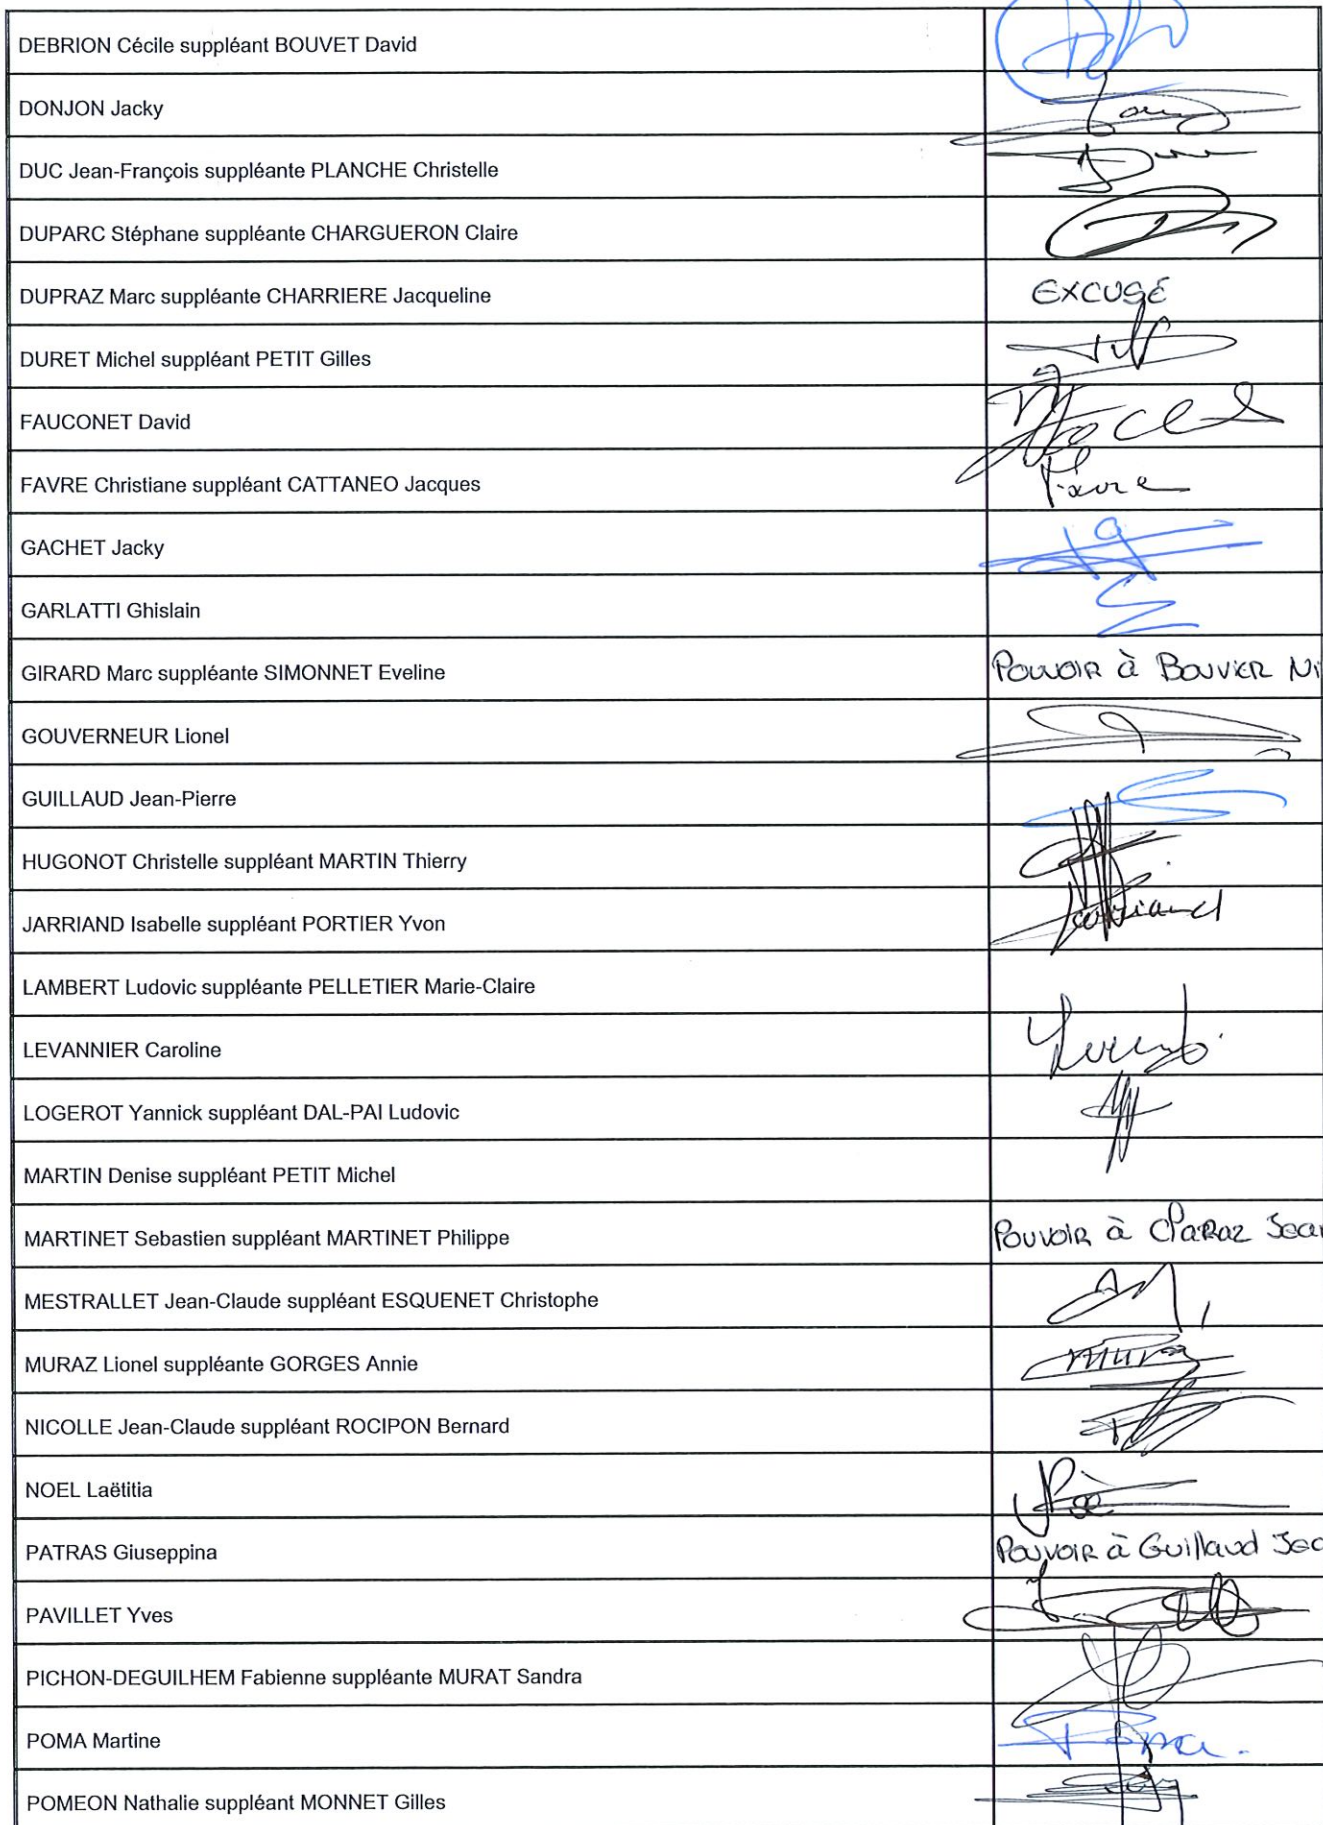 DEBRION Cécile suppléant BOUVET David
DONJON Jacky
DUC Jean-François suppléante PLANCHE Christelle
DUPARC Stéphane suppléante CHARGUERON Claire
DUPRAZ Marc suppléante CHARRIERE Jacqueline EXCUSÉ
DURET Michel suppléant PETIT Gilles
FAUCONET David
FAVRE Christiane suppléant CATTANEO Jacques Favre
GACHET Jacky
GARLATTI Ghislain
GIRARD Marc suppléante SIMONNET Eveline POUVOIR à BOUVIER Ni
GOUVERNEUR Lionel
GUILLAUD Jean-Pierre
HUGONOT Christelle suppléant MARTIN Thierry
JARRIAND Isabelle suppléant PORTIER Yvon Jarriand
LAMBERT Ludovic suppléante PELLETIER Marie-Claire
LEVANNIER Caroline
LOGEROT Yannick suppléant DAL-PAI Ludovic
MARTIN Denise suppléant PETIT Michel
MARTINET Sebastien suppléant MARTINET Philippe POUVOIR à CLARAZ Jean
MESTRALLET Jean-Claude suppléant ESQUENET Christophe
MURAZ Lionel suppléante GORGES Annie Muraz
NICOLLE Jean-Claude suppléant ROCIPON Bernard
NOEL Laëtitia
PATRAS Giuseppina POUVOIR à Guillaud Jea
PAVILLET Yves
PICHON-DEGUILHEM Fabienne suppléante MURAT Sandra
POMA Martine Poma.
POMEON Nathalie suppléant MONNET Gilles